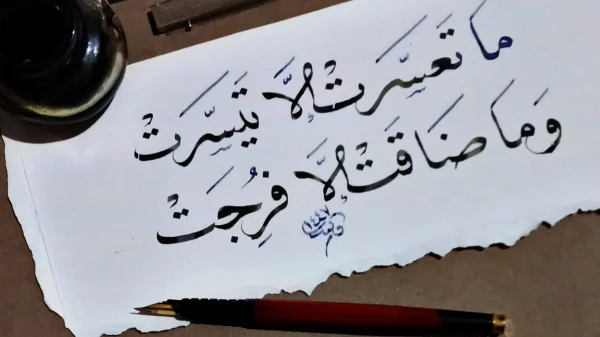 ما تَعسَّرتْ إلَّا تَيسَّرتْ
وَما ضَاقَتْ إلَّا فُرِجَتْ
١٤٤٧